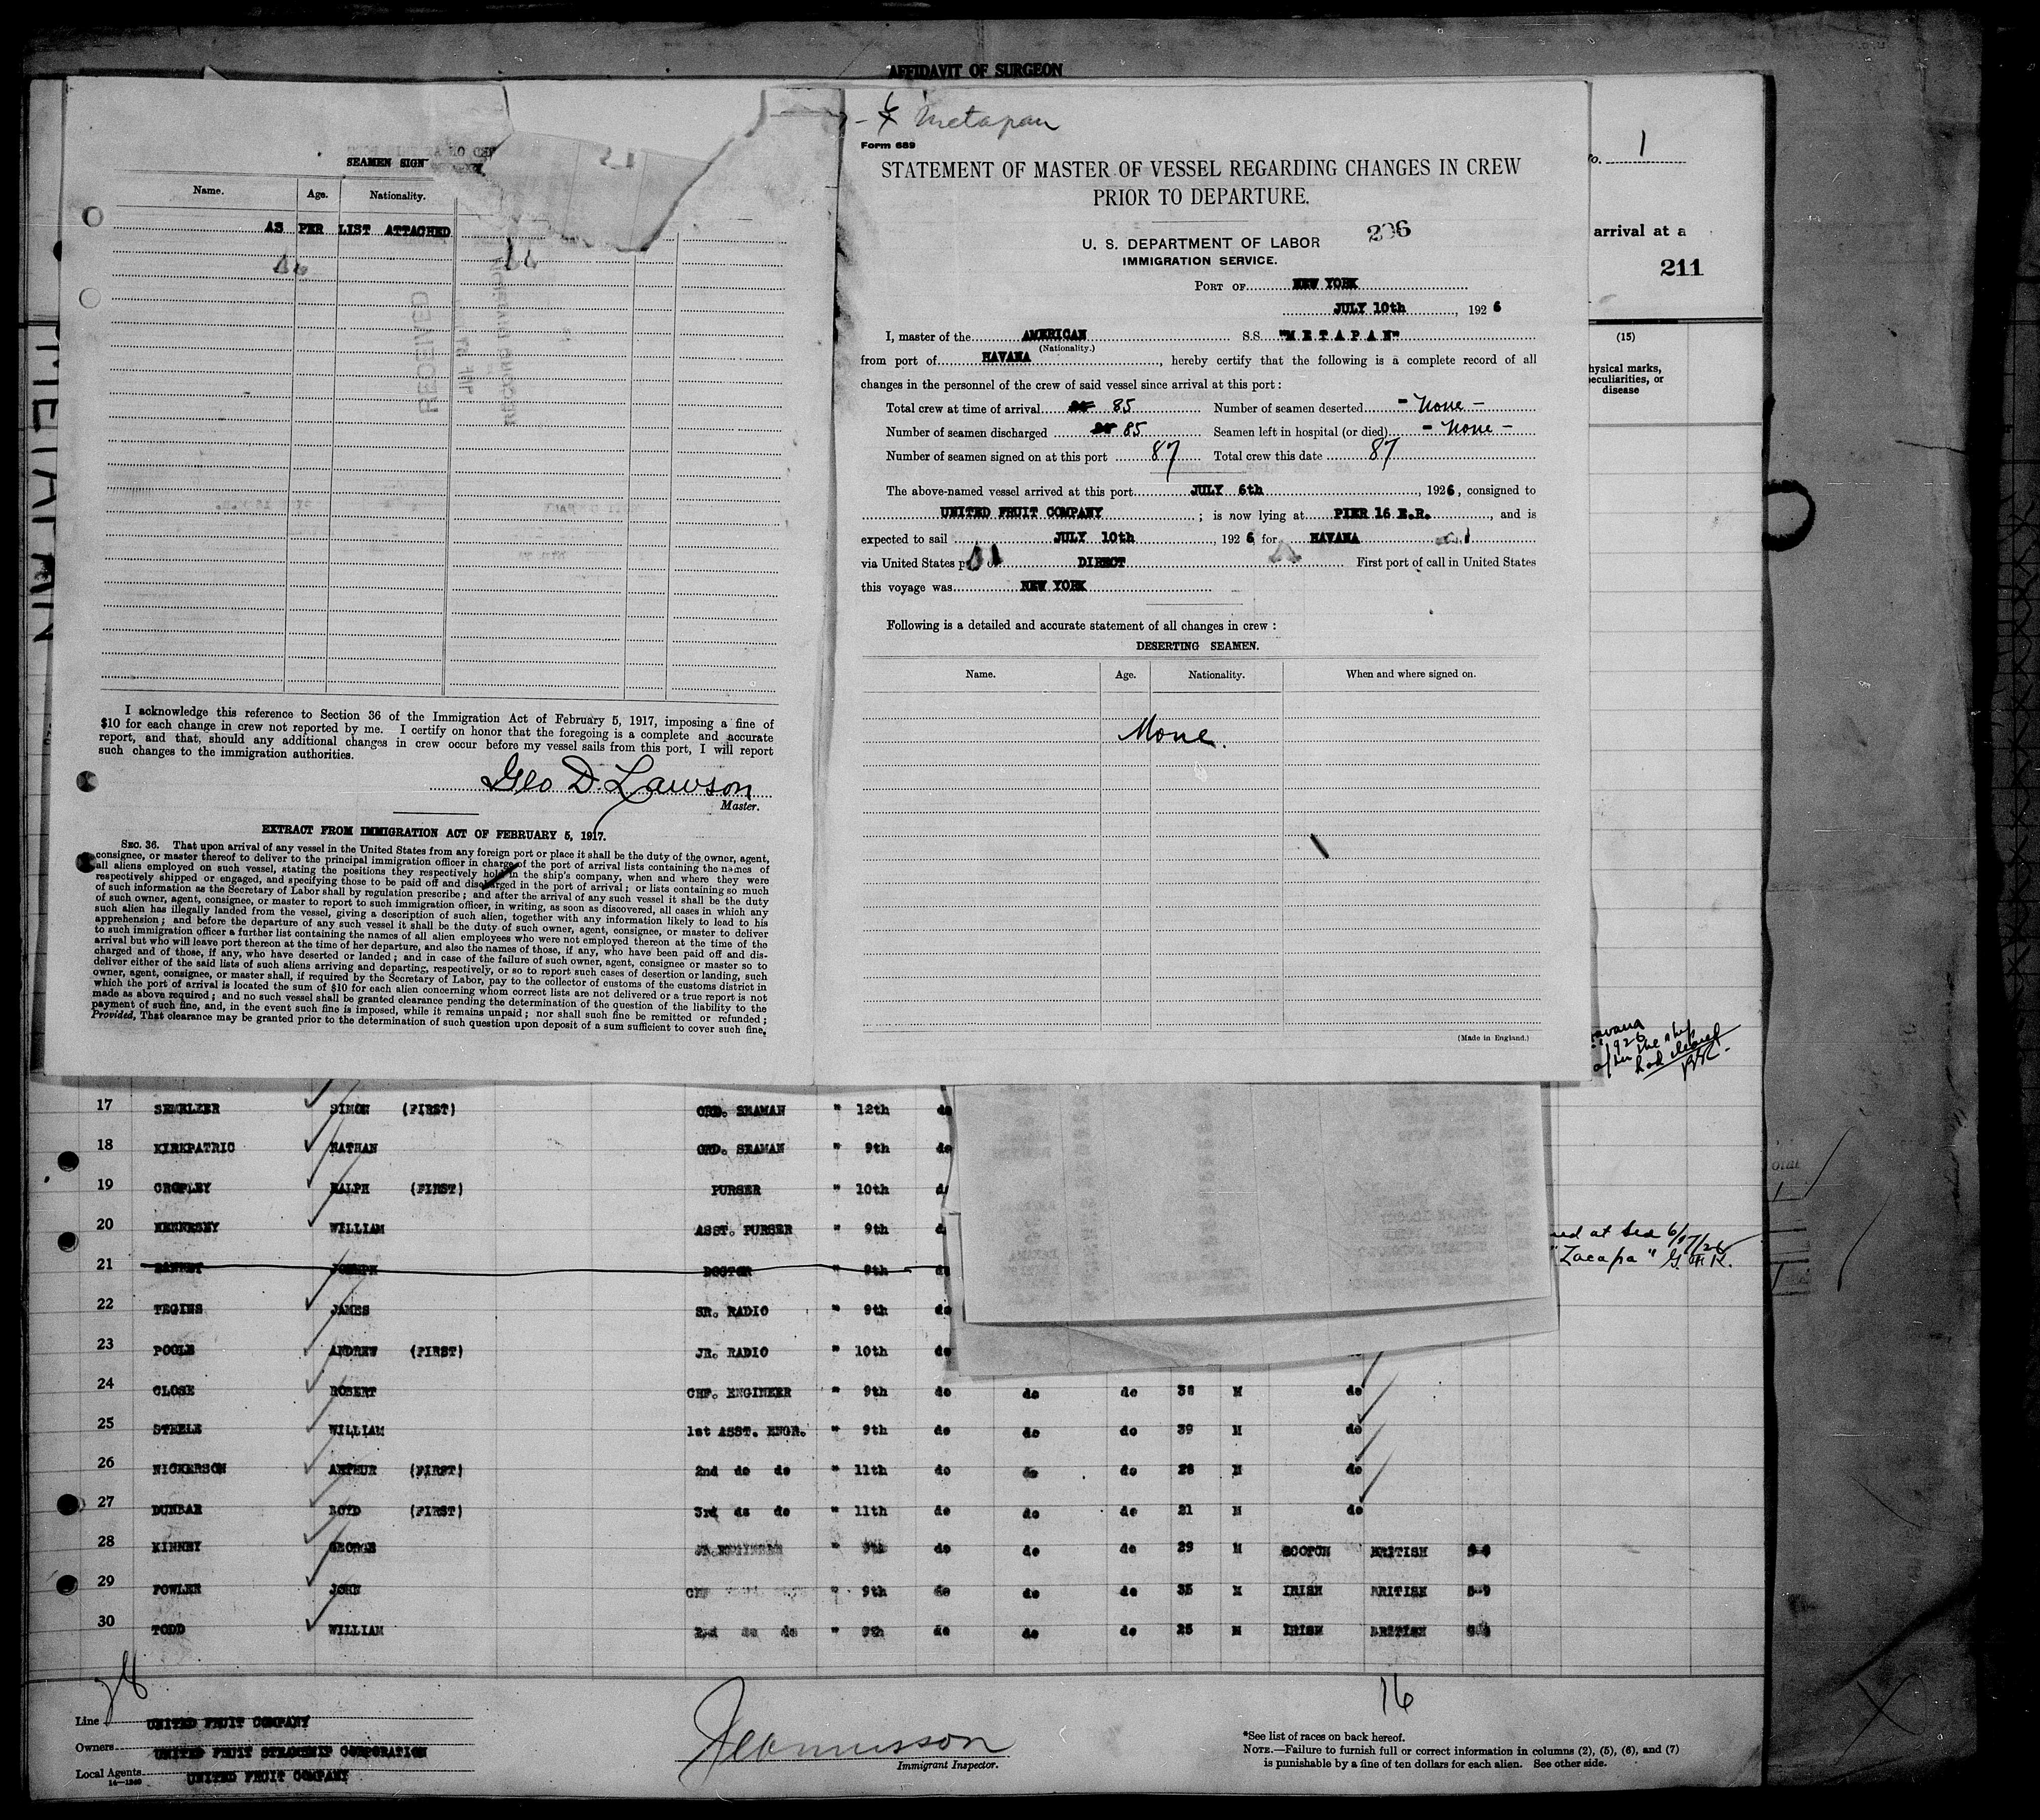 AFFIDAVIT OF SURGEON
SEAMEN SIGN
Name. Age. Nationality.
AS PER LIST ATTACHED
RECEIVED
I acknowledge this reference to Section 36 of the Immigration Act of February 5, 1917, imposing a fine of
$10 for each change in crew not reported by me. I certify on honor that the foregoing is a complete and accurate
report, and that, should any additional changes in crew occur before my vessel sails from this port, I will report
such changes to the immigration authorities.
Geo D. Lawson
Master.
EXTRACT FROM IMMIGRATION ACT OF FEBRUARY 5, 1917.
SEC. 36. That upon arrival of any vessel in the United States from any foreign port or place it shall be the duty of the owner, agent,
consignee, or master thereof to deliver to the principal immigration officer in charge of the port of arrival lists containing the names of
all aliens employed on such vessel, stating the positions they respectively hold in the ship's company, when and where they were
respectively shipped or engaged, and specifying those to be paid off and discharged in the port of arrival; or lists containing so much
of such information as the Secretary of Labor shall by regulation prescribe; and after the arrival of any such vessel it shall be the duty
of such owner, agent, consignee, or master to report to such immigration officer, in writing, as soon as discovered, all cases in which any
such alien has illegally landed from the vessel, giving a description of such alien, together with any information likely to lead to his
apprehension; and before the departure of any such vessel it shall be the duty of such owner, agent, consignee, or master to deliver
to such immigration officer a further list containing the names of all alien employees who were not employed thereon at the time of the
arrival but who will leave port thereon at the time of her departure, and also the names of those, if any, who have been paid off and dis-
charged and of those, if any, who have deserted or landed; and in case of the failure of such owner, agent, consignee or master so to
deliver either of the said lists of such aliens arriving and departing, respectively, or so to report such cases of desertion or landing, such
owner, agent, consignee, or master shall, if required by the Secretary of Labor, pay to the collector of customs of the customs district in
which the port of arrival is located the sum of $10 for each alien concerning whom correct lists are not delivered or a true report is not
made as above required; and no such vessel shall be granted clearance pending the determination of the question of the liability to the
payment of such fine, and, in the event such fine is imposed, while it remains unpaid; nor shall such fine be remitted or refunded;
Provided, That clearance may be granted prior to the determination of such question upon deposit of a sum sufficient to cover such fine,
Metapan
Form 689
STATEMENT OF MASTER OF VESSEL REGARDING CHANGES IN CREW
PRIOR TO DEPARTURE.
206
U. S. DEPARTMENT OF LABOR
IMMIGRATION SERVICE.
PORT OF NEW YORK
JULY 10th, 1926
I, master of the AMERICAN S.S. "METAPAN"
(Nationality.)
from port of HAVANA, hereby certify that the following is a complete record of all
changes in the personnel of the crew of said vessel since arrival at this port:
Total crew at time of arrival 85 Number of seamen deserted - None -
Number of seamen discharged 85 Seamen left in hospital (or died) - None -
Number of seamen signed on at this port 87 Total crew this date 87
The above-named vessel arrived at this port JULY 6th, 1926, consigned to
UNITED FRUIT COMPANY; is now lying at PIER 16 E.R., and is
expected to sail JULY 10th, 1926 for HAVANA
via United States DIRECT First port of call in United States
this voyage was NEW YORK
Following is a detailed and accurate statement of all changes in crew:
DESERTING SEAMEN.
Name. Age. Nationality. When and where signed on.
None.
(Made in England.)
1
arrival at a
211
(15)
hysical marks,
peculiarities, or
disease
1926
after the ship
had cleared
17 SEMELZER SIMON (FIRST) ORD. SEAMAN " 12th do
18 KIRKPATRIC NATHAN ORD. SEAMAN " 9th do
19 CROPLEY RALPH (FIRST) PURSER " 10th
20 HENNESEY WILLIAM ASST. PURSER " 9th
at sea 6/17/26
"Zacapa" G.H.K.
21 JOSEPH DOCTOR " 9th do
22 TEGINS JAMES SR. RADIO " 9th do
23 POOLE ANDREW (FIRST) JR. RADIO " 10th do
24 CLOSE ROBERT CHF. ENGINEER " 9th do do do 38 M do
25 STEELE WILLIAM 1st ASST. ENGR. " 9th do do do 39 M do
26 NICKERSON ARTHUR (FIRST) 2nd do do " 11th do do do 28 M do
27 DUNBAR BOYD (FIRST) 3rd do do " 11th do do do 21 M do
28 KINNEY GEORGE JR. ENGINEER " 9th do do do 29 M SCOTCH BRITISH
29 FOWLER JOHN CHF " 9th do do do 35 M IRISH BRITISH
30 TODD WILLIAM 2nd do do " 9th do do do 25 M IRISH BRITISH
28
16
Line UNITED FRUIT COMPANY
Owners UNITED FRUIT STEAMSHIP CORPORATION
Local Agents UNITED FRUIT COMPANY
14—1240
Immigrant Inspector.
*See list of races on back hereof.
NOTE.—Failure to furnish full or correct information in columns (2), (5), (6), and (7)
is punishable by a fine of ten dollars for each alien. See other side.
METAPAN